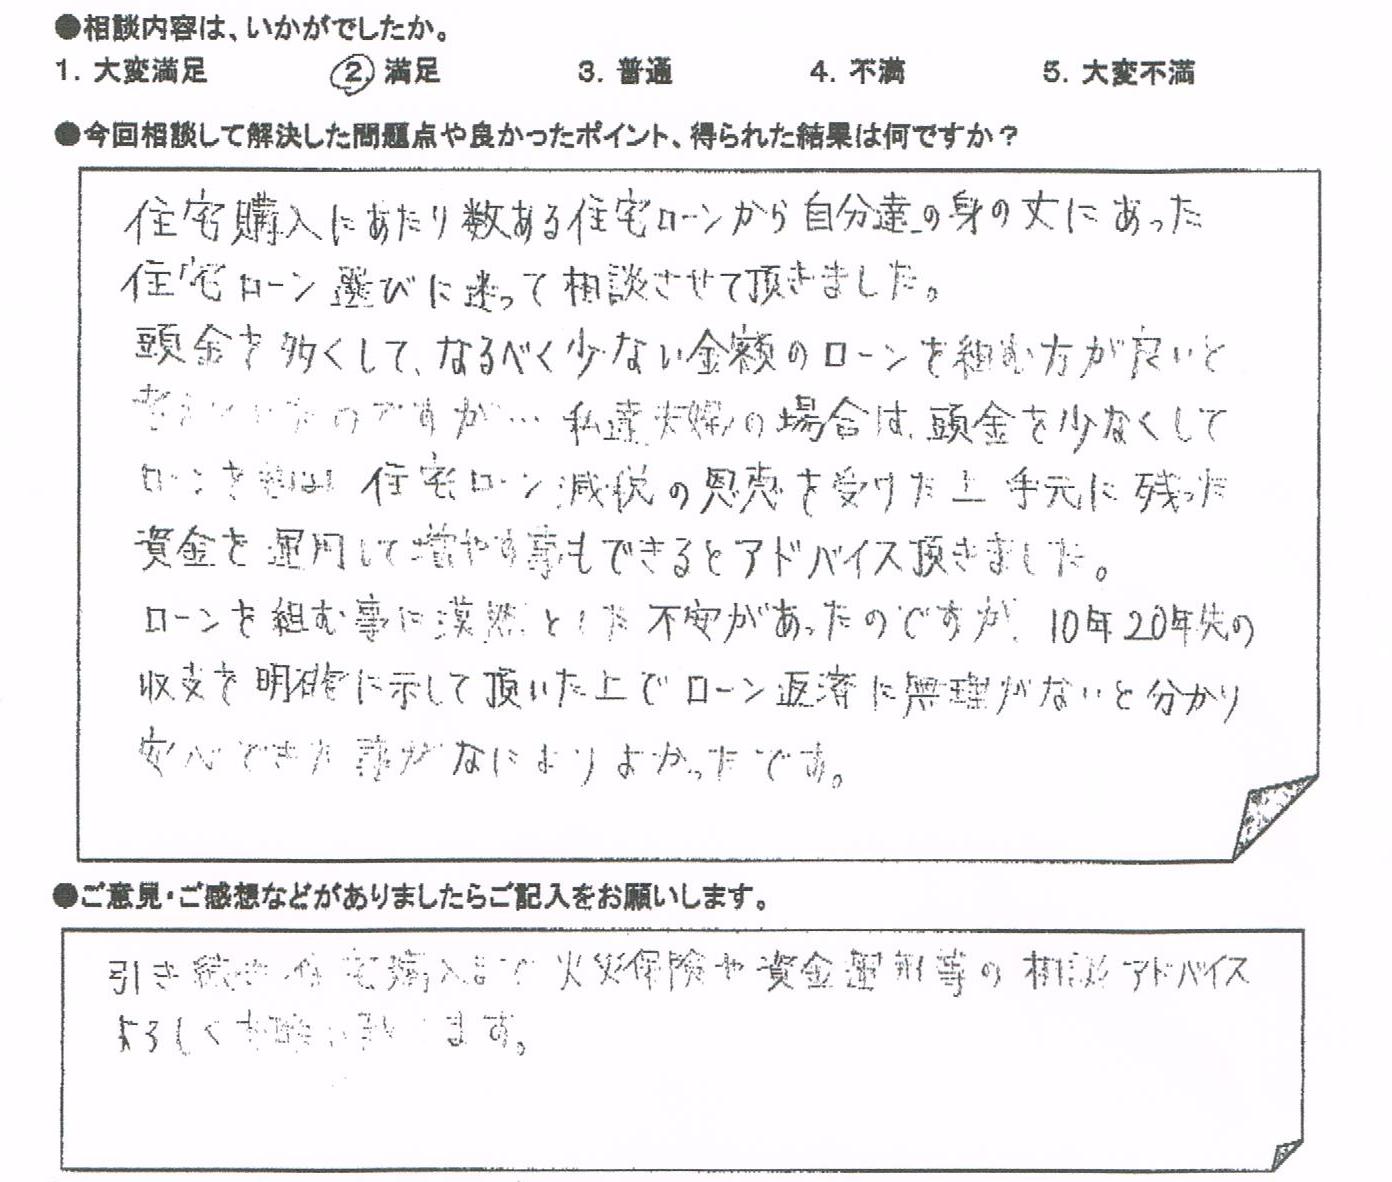 ●相談内容は、いかがでしたか。
1. 大変満足 2. 満足 3. 普通 4. 不満 5. 大変不満
●今回相談して解決した問題点や良かったポイント、得られた結果は何ですか？
住宅購入にあたり数ある住宅ローンから自分達の身の丈にあった
住宅ローン選びに迷って相談させて頂きました。
頭金を多くして、なるべく少ない金額のローンを組む方が良いと
考えていたのですが… 私達夫婦の場合は、頭金を少なくして
ローンを組み 住宅ローン減税の恩恵を受けた上 手元に残った
資金を運用して増やす事もできるとアドバイス頂きました。
ローンを組む事に漠然とした不安があったのですが、10年20年先の
収支を明確に示して頂いた上でローン返済に無理がないと分かり
安心できた事がなによりよかったです。
●ご意見・ご感想などがありましたらご記入をお願いします。
引き続き住宅購入まで火災保険や資金運用等の相談アドバイス
よろしくお願い致します。